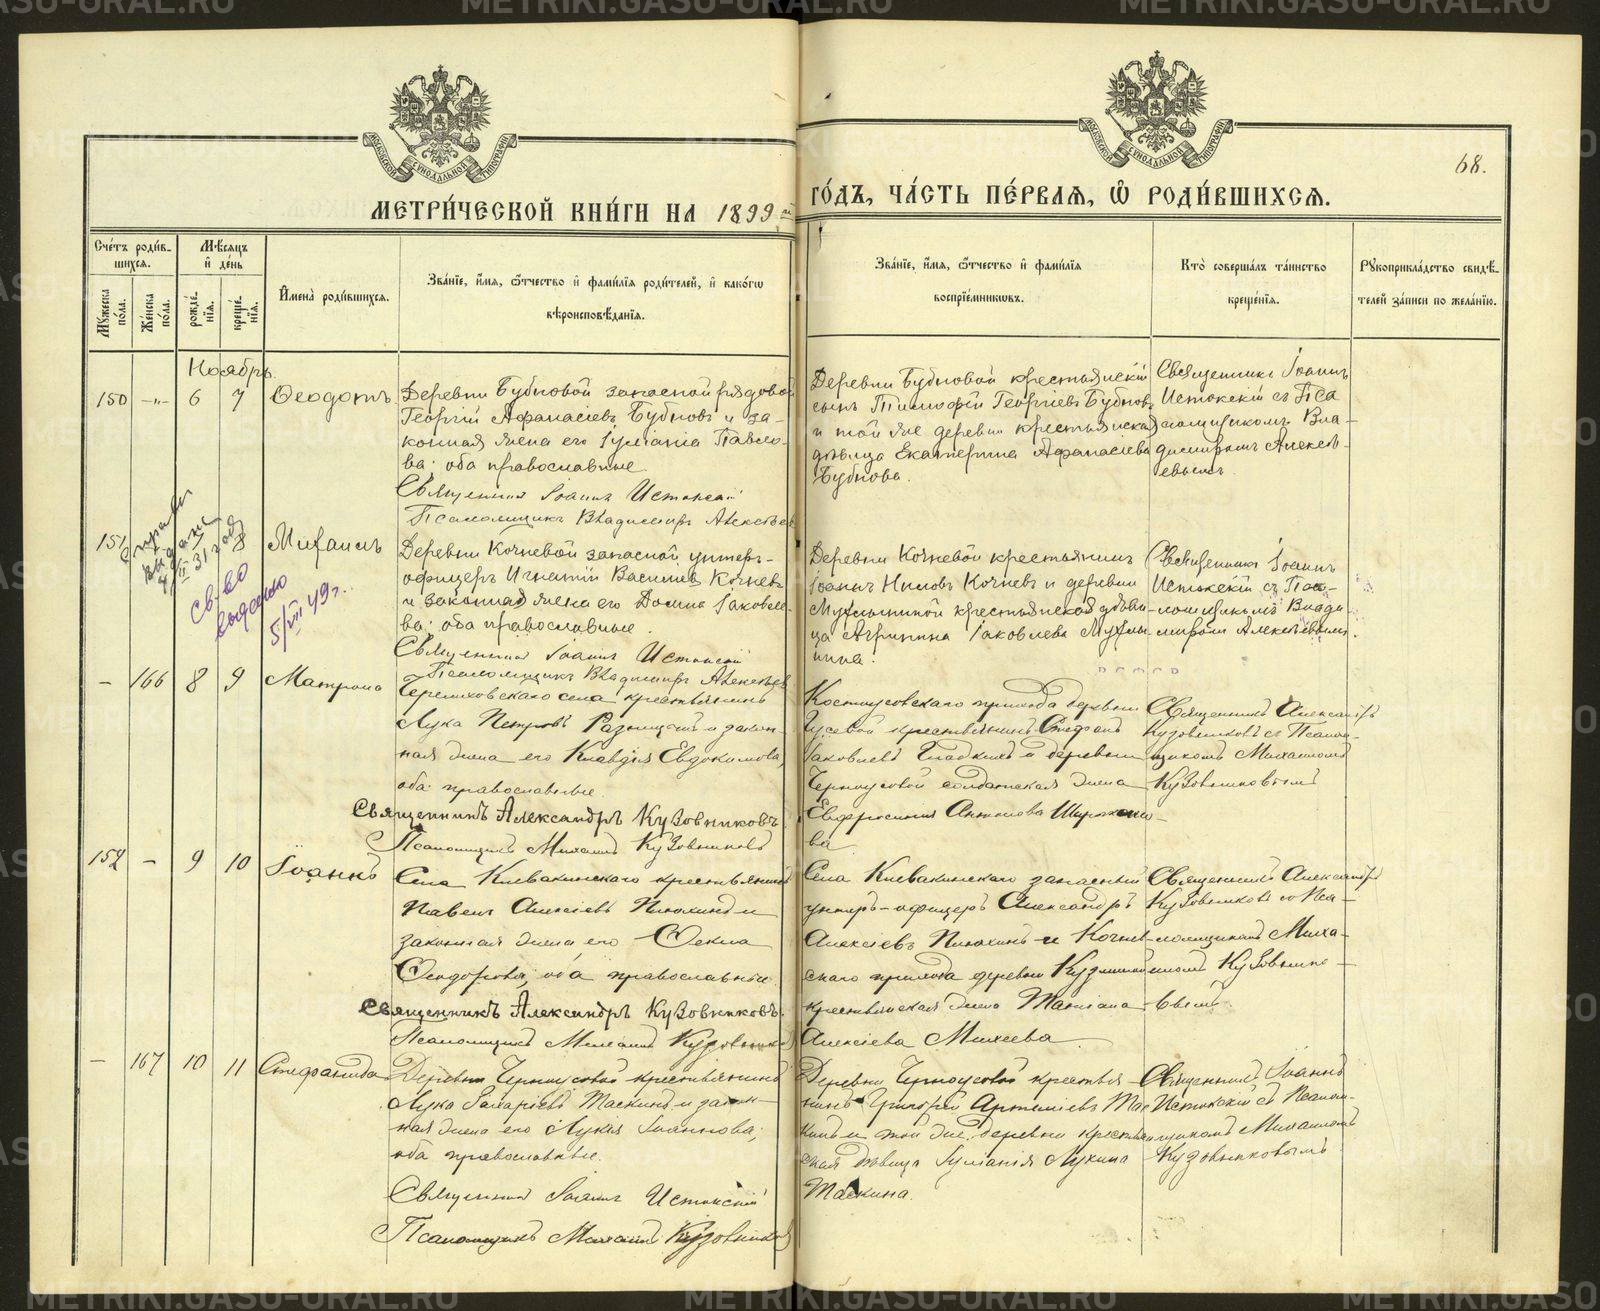 METRIKI.GASU-URAL.RU
68.
МОСКОВСКОЙ СѴНОДАЛЬНОЙ ТИПОГРАФІИ
МОСКОВСКОЙ СѴНОДАЛЬНОЙ ТИПОГРАФІИ
МЕТРИ́ЧЕСКОЙ КНИ́ГИ НА 1899й ГО́ДЪ, ЧА́СТЬ ПЕ́РВАЯ, Ѿ РОДИ́ВШИХСЯ.
Сче́тъ роди́в-
шихся.
Му́жеска по́ла.
Же́нска по́ла.
Мѣ́сяцъ
и҆ де́нь
рожде́-
нїѧ.
креще́-
нїѧ.
И҆мена̀ роди́вшихся.
Зва́нїе, и҆́мя, ѻ҆́тчество и҆ фами́лїѧ роди́телей, и҆ како́гѡ
вѣроисповѣ́данїѧ.
Зва́нїе, и҆́мя, ѻ҆́тчество и҆ фами́лїѧ
воспрїе́мникѡвъ.
Кто̀ соверша́лъ та́инство
креще́нїѧ.
Рꙋкоприкла́дство свидѣ́-
телей за́писи по жела́нїю.
Ноябрь
150 -"- 6 7 Ѳеодотъ
Деревни Бубновой запасной рядовой
Георгій Афанасіевъ Бубновъ и за-
конная жена его Іуліанія Павло-
ва: оба православные.
Священникъ Іоаннъ Истокскій
Псаломщикъ Владимиръ Алексѣевъ
Деревни Бубновой крестьянскій
сынъ Тимофій Георгіевъ Бубновъ
и той же деревни крестьянская
дѣвица Екатерина Афанасіева
Бубнова.
Священникъ Іоаннъ
Истокскій съ Пса
ломщикомъ Вла-
димиромъ Алексѣ-
евымъ.
151 8 Михаилъ
выдана
31 года
св-во
выдано
5/VII 49 г.
Деревни Кочневой запасной унтеръ-
офицеръ Игнатій Васильевъ Кочневъ
и законная жена его Домна Іаковле-
ва: оба православные.
Священникъ Іоаннъ Истокскій
Псаломщикъ Владимиръ Алексѣевъ
Деревни Кочневой крестьянинъ
Іоаннъ Ниловъ Кочневъ и деревни
крестьянская дѣви
ца Агрипина Іаковлева
Священникъ Іоаннъ
Истокскій съ Пса-
ломщикомъ Влади
миромъ Алексѣевымъ.
- 166 8 9 Матрона
села крестьянинъ
Лука Петровъ и закон-
ная жена его Клавдія Евдокимова,
оба православные.
Священникъ Александръ Кузовниковъ
Псаломщикъ Михаилъ Кузовниковъ
прихода деревни
Гусевой крестьянинъ Стефанъ
Іаковлевъ Гладкихъ и деревни
Черноусовой солдатская жена
Евфросинія Антонова
ва
Священникъ Александръ
Кузовниковъ съ Псалом-
щикомъ Михаиломъ
Кузовниковымъ
152 - 9 10 Іоаннъ
Села Клевакинскаго крестьянинъ
Павелъ Алексіевъ Плюхинъ и
законная жена его Ѳекла
Ѳеодорова, оба православные.
Священникъ Александръ Кузовниковъ.
Псаломщикъ Михаилъ Кузовниковъ
Села Клевакинскаго запасный
унтеръ-офицеръ Александръ
Алексіевъ Плюхинъ и Кочнев-
скаго прихода деревни
крестьянская жена Татіана
Алексіева Михеева
Священникъ Александръ
Кузовниковъ со Пса-
ломщикомъ Миха-
иломъ Кузовнико-
вымъ
- 167 10 11 Стефанида
Деревни Черноусовой крестьянинъ
Лука Захаріевъ Таскинъ и закон-
ная жена его Лукія Іоаннова;
оба православные.
Священникъ Іоаннъ Истокскій
Псаломщикъ Михаилъ Кузовниковъ
Деревни Черноусовой крестья-
нинъ Григорій Артеміевъ Тас
кинъ и той же деревни крестьян
ская дѣвица Іуліанія Лукина
Таскина.
Священникъ Іоаннъ
Истокскій съ Псалом-
щикомъ Михаиломъ
Кузовниковымъ